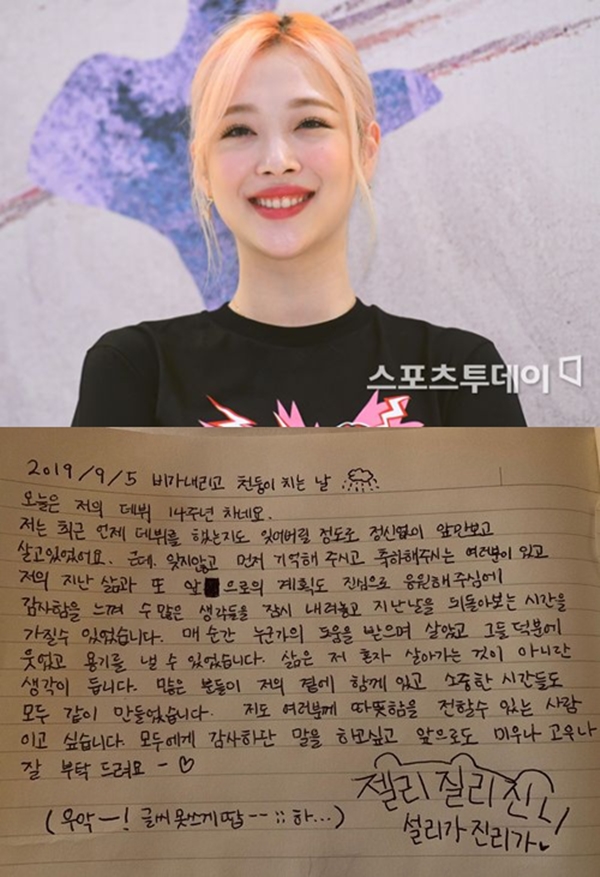 스포츠투데이
2019/9/5 비가내리고 천둥이 치는 날
오늘은 저의 데뷔 14주년 차네요.
저는 최근 언제 데뷔를 했는지도 잊어버릴 정도로 정신없이 앞만보고
살고있었어요. 근데 잊지않고 먼저 기억해 주시고 축하해주시는 여러분이 있고
저의 지난 삶과 또 앞으로의 계획도 진심으로 응원해주심에
감사함을 느껴 수많은 생각들을 잠시 내려놓고 지난날을 되돌아보는 시간을
가질수 있었습니다. 매 순간 누군가의 도움을 받으며 살았고 그들 덕분에
웃었고 용기를 낼 수 있었습니다. 삶은 저 혼자 살아가는 것이 아니란
생각이 듭니다. 많은 분들이 저의 곁에 함께 있고 소중한 시간들도
모두 같이 만들었습니다. 저도 여러분께 따뜻함을 전할수 있는 사람
이고 싶습니다. 모두에게 감사하단 말을 하고싶고 앞으로도 미우나 고우나
잘 부탁 드려요 - ♡
젤리 질리 진리
설리가 진리가
(우악-! 글씨 못쓰게땁--;; 하...)